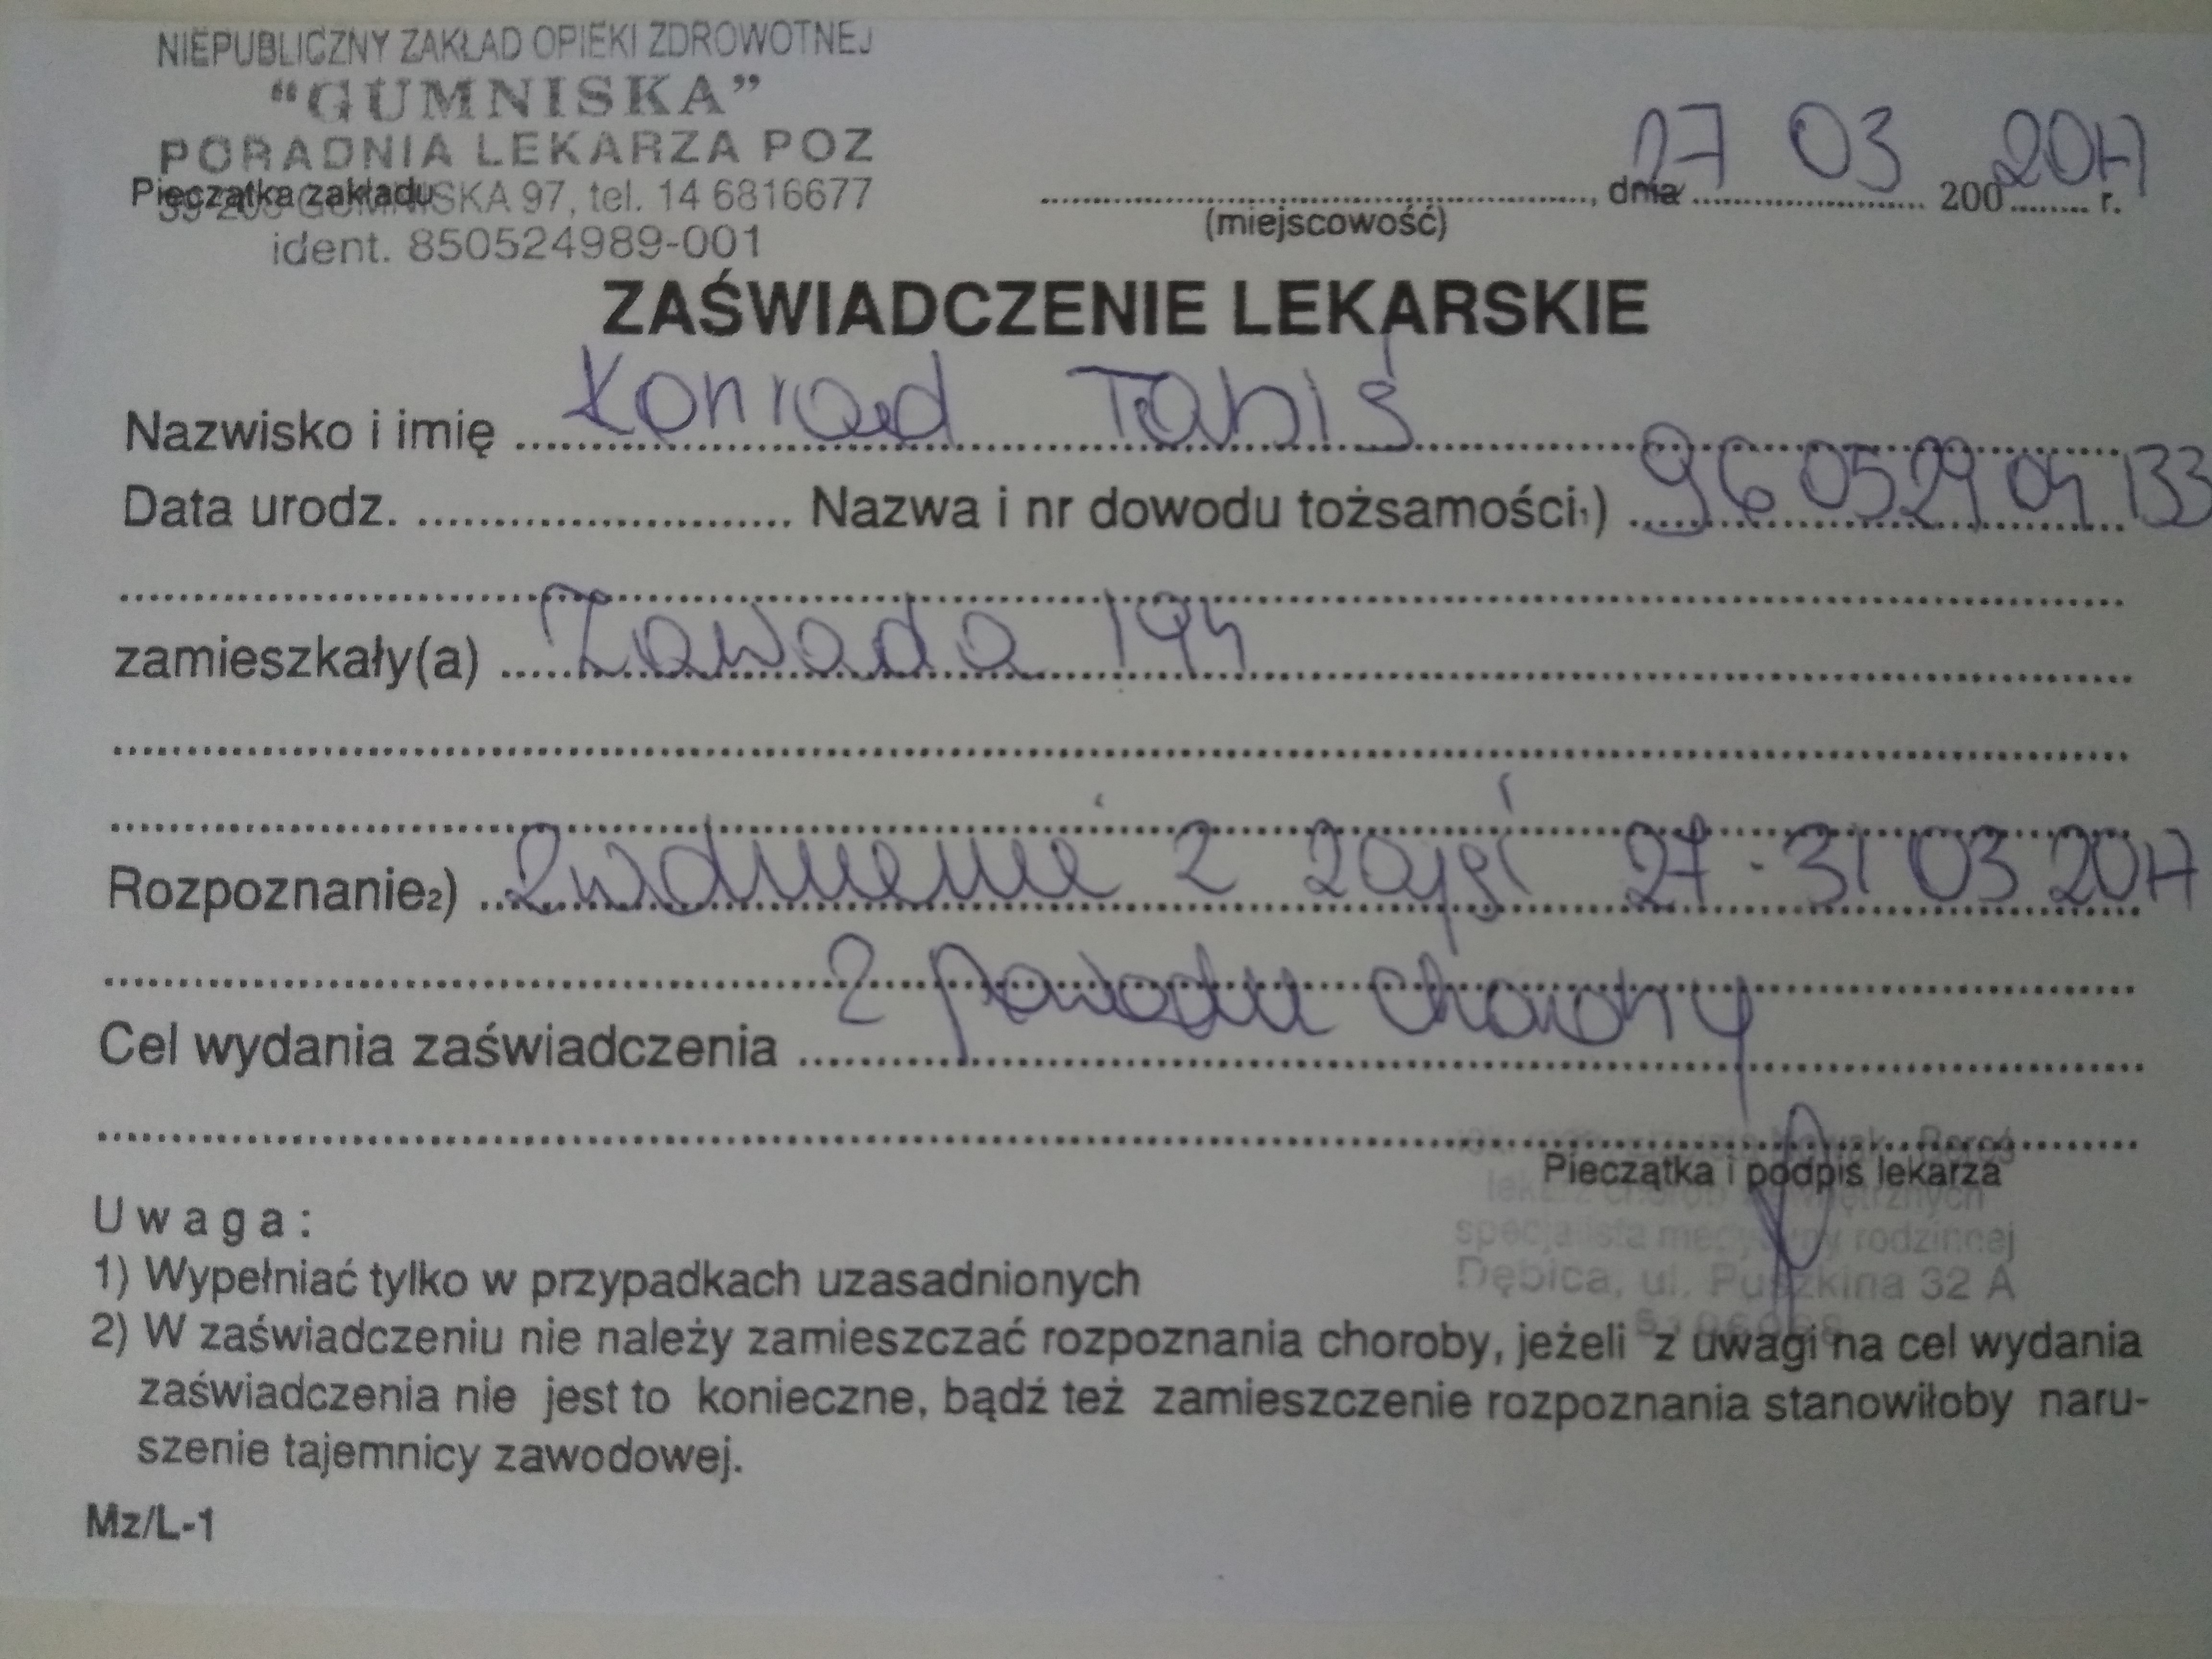 NIEPUBLICZNY ZAKŁAD OPIEKI ZDROWOTNEJ
“GUMNISKA”
PORADNIA LEKARZA POZ
Pieczątka zakładu
GUMNISKA 97, tel. 14 6816677
ident. 850524989-001
27 03 2017
..............., dnia ............... 200........ r.
(miejscowość)
ZAŚWIADCZENIE LEKARSKIE
Nazwisko i imię Konrad Tabiś
Data urodz. ............... Nazwa i nr dowodu tożsamości1) 96052904133
zamieszkały(a) Zawada 194
Rozpoznanie2) Zwolnienie z zajęć 27-31 03 2017
z powodu choroby
Cel wydania zaświadczenia
Pieczątka i podpis lekarza
specjalista medycyny rodzinnej
Dębica, ul. Puszkina 32 A
Uwaga:
1) Wypełniać tylko w przypadkach uzasadnionych
2) W zaświadczeniu nie należy zamieszczać rozpoznania choroby, jeżeli z uwagi na cel wydania
zaświadczenia nie jest to konieczne, bądź też zamieszczenie rozpoznania stanowiłoby naru-
szenie tajemnicy zawodowej.
Mz/L-1